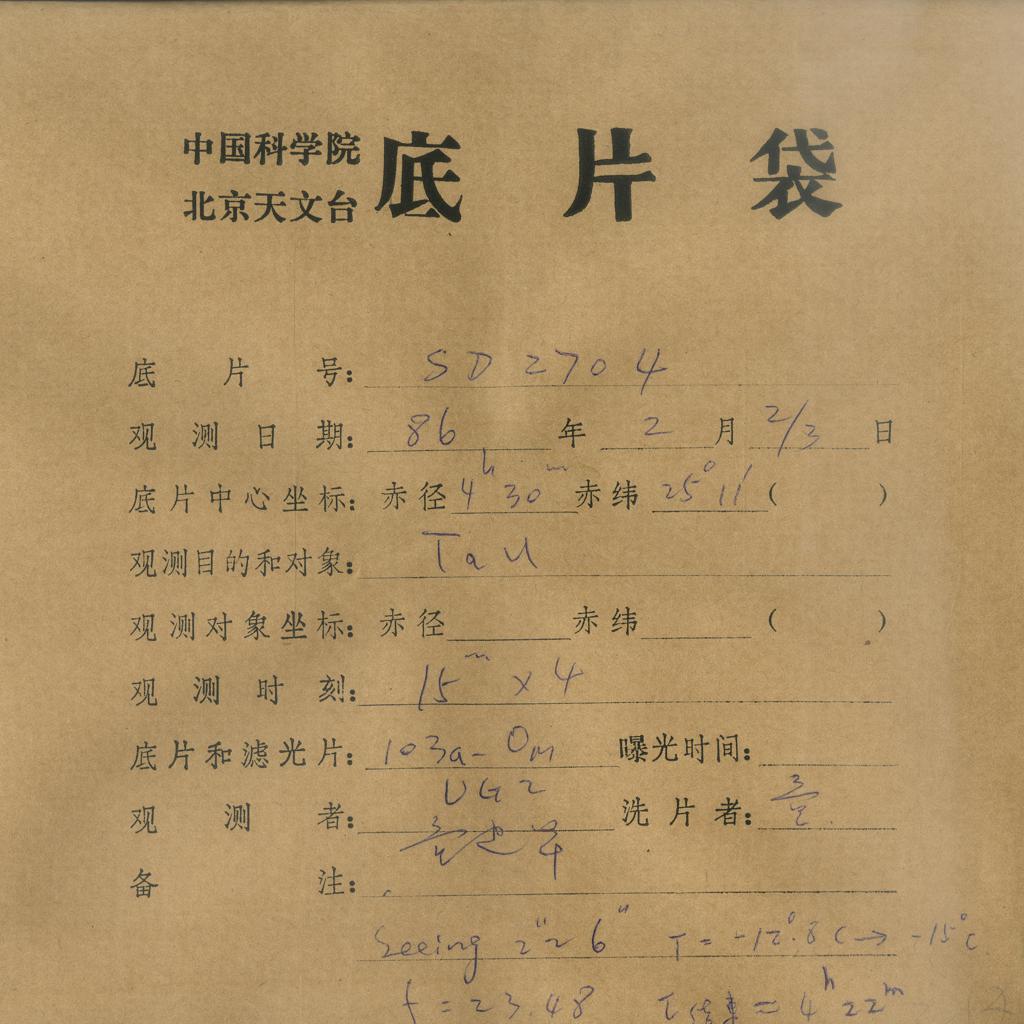 中国科学院
北京天文台
底片袋
底片号: SD 2704
观测日期: 86 年 2 月 2/3 日
底片中心坐标: 赤径 4h 30m 赤纬 25° 11′ ( )
观测目的和对象: Tau
观测对象坐标: 赤径 赤纬 ( )
观测时刻: 15m × 4
底片和滤光片: 103a-O 曝光时间:
UG2
观测者: 洗片者:
备注:
Seeing 2"~6" T = -12°.8C → -15°C
f = 23.48 T结束 = 4h 22m